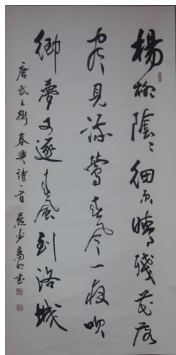 楊柳陰陰細雨晴殘花落
盡見流鶯春風一夜吹
鄉夢又逐春風到洛城
唐武元衡春興詩一首